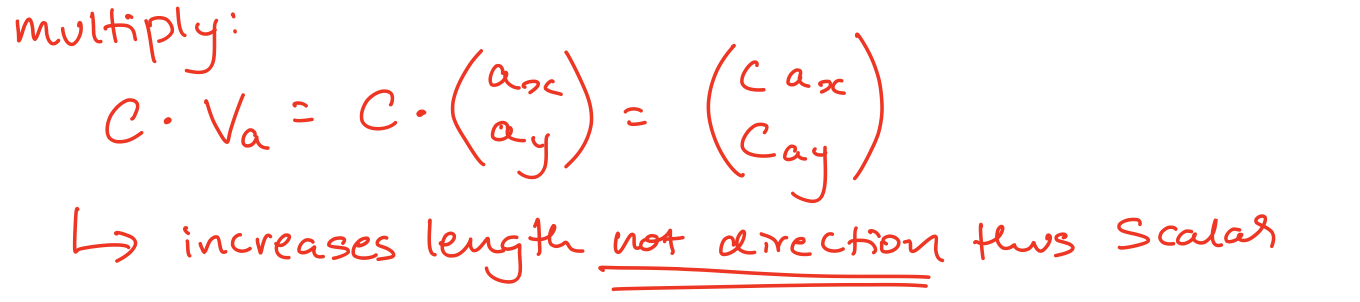 multiply:
C · Va = C · (ax ay) = (C ax Cay)
↳ increases length not direction thus scalar